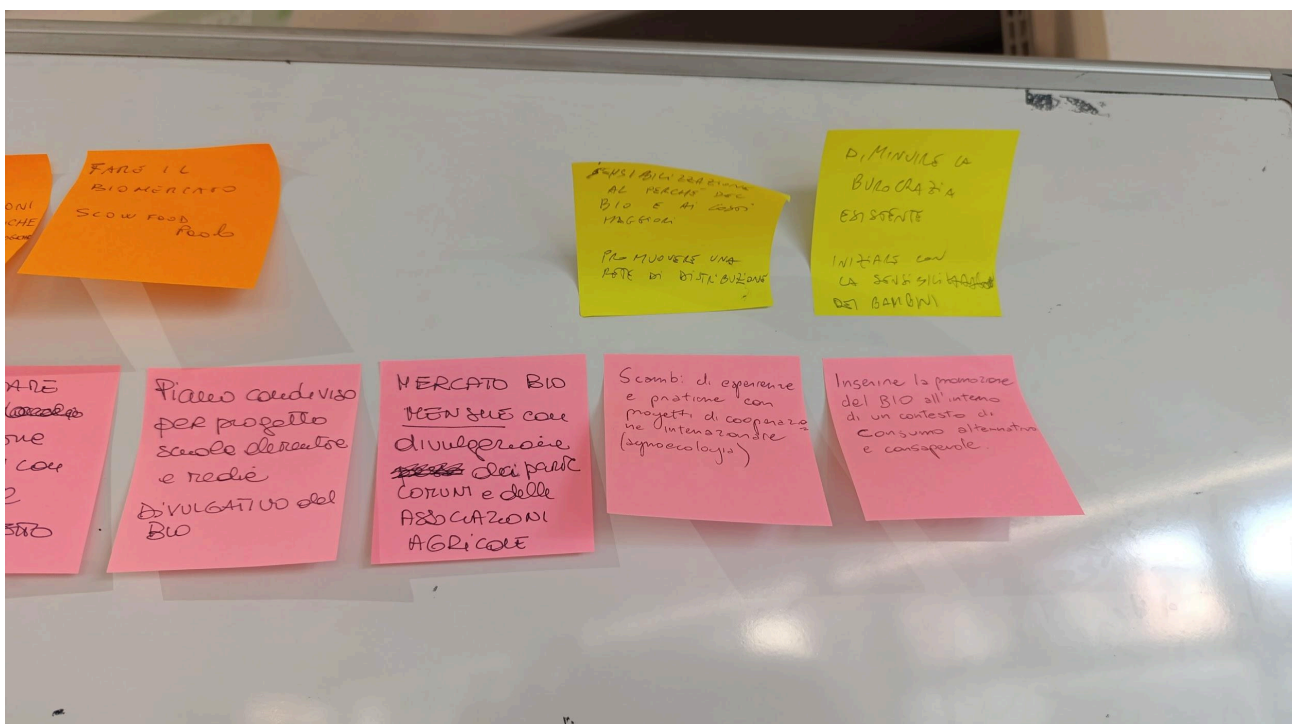 ONI
CHE
FARE IL
BIOMERCATO
SLOW FOOD
SENSIBILIZZAZIONE
AL PERCHÉ DEL
BIO E AI COSTI
MAGGIORI
PROMUOVERE UNA
RETE DI DISTRIBUZIONE
DIMINUIRE LA
BUROCRAZIA
ESISTENTE
INIZIARE CON
LA
DEI BAMBINI
ARE
one
con
Piano condiviso
per progetto
scuole elementare
e medie
DIVULGATIVO del
BIO
MERCATO BIO
MENSILE con
divulgazione
dei
COMUNI e delle
ASSOCIAZIONI
AGRICOLE
Scambi di esperienze
e pratiche con
progetti di cooperazio
ne internazionale
(agroecologia)
Inserire la promozione
del BIO all'interno
di un contesto di
consumo alternativo
e consapevole.